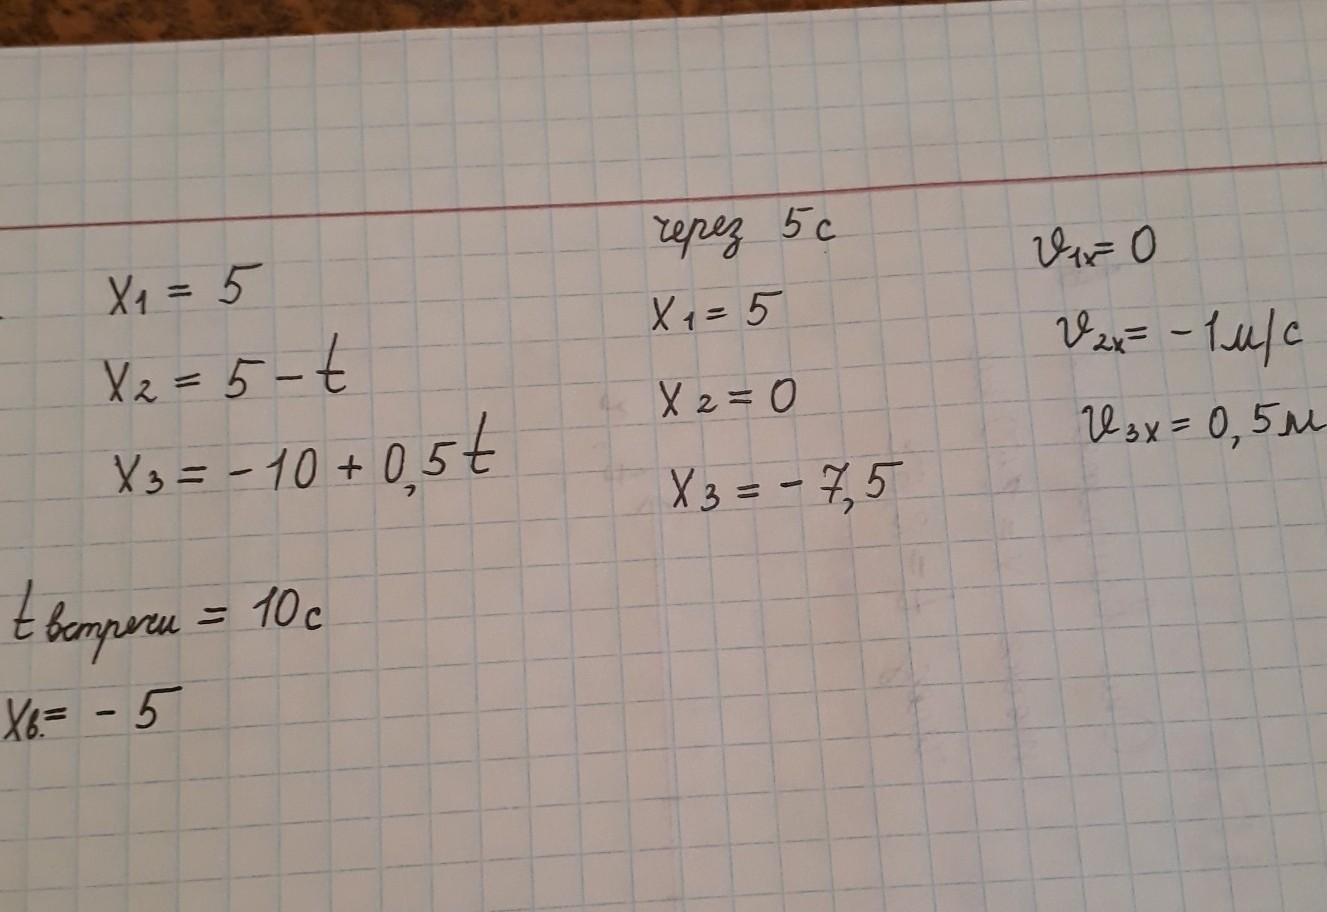 x₁ = 5
x₂ = 5 − t
x₃ = −10 + 0,5t
t встречи = 10с
xв. = −5
через 5с
x₁ = 5
x₂ = 0
x₃ = −7,5
υ₁ₓ = 0
υ₂ₓ = −1м/с
υ₃ₓ = 0,5м